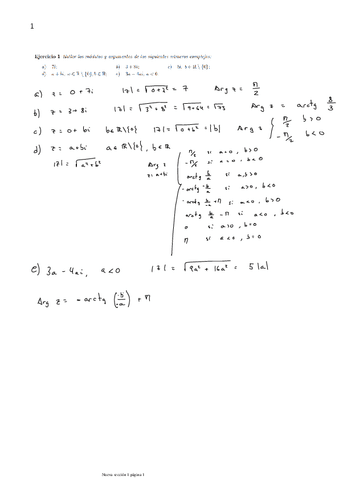 1
Ejercicio 1 Hallar los módulos y argumentos de los siguientes números complejos:
a) 7i; b) 3 + 8i; c) bi, b ∈ ℝ \ {0};
d) a + bi, a ∈ ℝ \ {0}, b ∈ ℝ; e) 3a − 4ai, a < 0.
a) z = 0 + 7i |z| = √(0 + 7²) = 7 Arg z = π/2
b) z = 3 + 8i |z| = √(3² + 8²) = √(9+64) = √73 Arg z = arctg 8/3
c) z = 0 + bi b ∈ ℝ\{0} |z| = √(0 + b²) = |b| Arg z { π/2 b > 0
-π/2 b < 0
d) z = a + bi a ∈ ℝ\{0}, b ∈ ℝ
|z| = √(a² + b²)
Arg z
z = a + bi
π/2 si a = 0, b > 0
-π/2 si a = 0, b < 0
arctg b/a si a > 0, b > 0
-arctg si a > 0, b < 0
-arctg + π si a < 0, b > 0
arctg b/a - π si a < 0, b < 0
0 si a > 0, b = 0
π si a < 0, b = 0
e) 3a - 4ai, a < 0 |z| = √(9a² + 16a²) = 5|a|
Arg z = - arctg + π